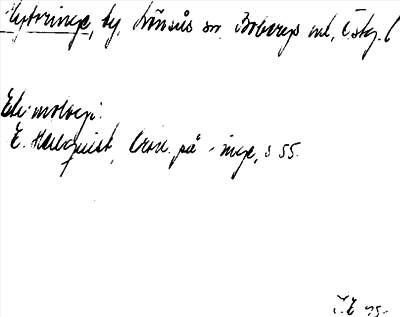 Hybringe, by, Lönsås sn. Bobergs hd, Östg. (
Etymologi:
E. Hellquist, Ortn. på -inge, s 55.